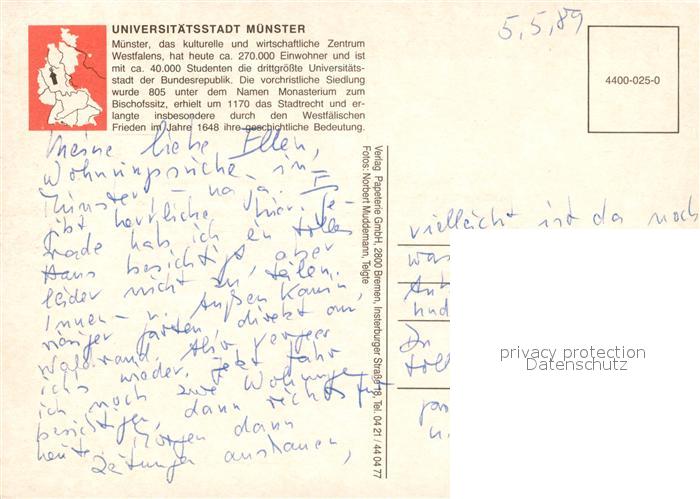 UNIVERSITÄTSSTADT MÜNSTER
Münster, das kulturelle und wirtschaftliche Zentrum
Westfalens, hat heute ca. 270.000 Einwohner und ist
mit ca. 40.000 Studenten die drittgrößte Universitäts-
stadt der Bundesrepublik. Die vorchristliche Siedlung
wurde 805 unter dem Namen Monasterium zum
Bischofssitz, erhielt um 1170 das Stadtrecht und er-
langte insbesondere durch den Westfälischen
Frieden im Jahre 1648 ihre geschichtliche Bedeutung.
5.5.89
4400-025-0
Meine liebe Ellen,
Wohnungssuche in
Münster – na ja. Es
ibt herrliche hier. Ge-
rade hab ich ein tolles
Haus besichtigt, aber
leider nicht zu teilen.
Innen- u. Außenkamin,
riesiger Garten, direkt am
Waldrand. Also vergess
ichs wieder. Jetzt fahr
ich noch zwei Wohnungen
besichtigen, dann reichts für
heute. Morgen dann
Zeitungen anschauen,
Verlag Papeterie GmbH, 2800 Bremen, Insterburger Straße 18, Tel. 04 21 / 44 04 77
Fotos: Norbert Muddemann, Telgte
vielleicht ist da noch
was
und
toll
u.
privacy protection
Datenschutz